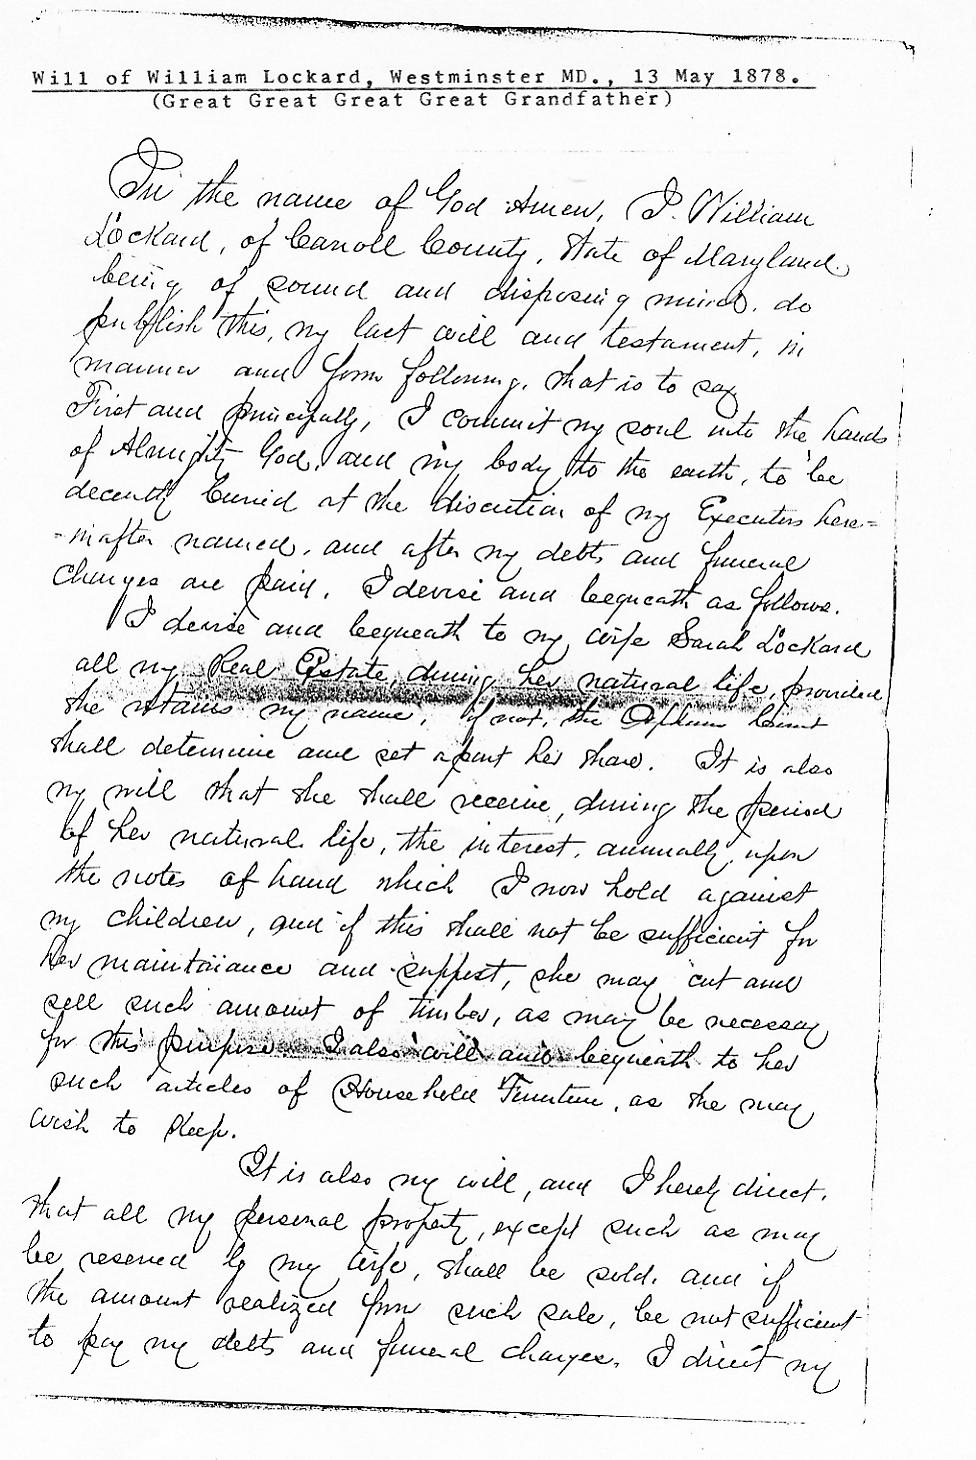 Will of William Lockard, Westminster MD., 13 May 1878.
(Great Great Great Great Grandfather)
In the name of God Amen, I. William
Lockard, of Carroll County, State of Maryland.
being of sound and disposing mind. do
publish this, my last will and testament, in
manner and form following, that is to say
First and principally, I commit my soul into the hands
of Almighty God, and my body to the earth, to be
decently buried at the discretion of my Executors here=
=inafter named, and after my debts and funeral
charges are paid, I devise and bequeath as follows.
I devise and bequeath to my wife Sarah Lockard
all my Real Estate, during her natural life, provided
she retains my name, if not, the Orphans Court
shall determine and set apart her share. It is also
my will that she shall receive, during the period
of her natural life, the interest, annually, upon
the notes of hand which I now hold against
my children, and if this shall not be sufficient for
her maintainance and support, she may cut and
sell such amount of timber, as may be necessary
for this purpose. I also will and bequeath to her
such articles of Household Furniture, as she may
wish to keep.
It is also my will, and I hereby direct,
that all my personal property, except such as may
be reserved by my wife, shall be sold, and if
the amount realized from such sale, be not sufficient
to pay my debts and funeral charges, I direct my